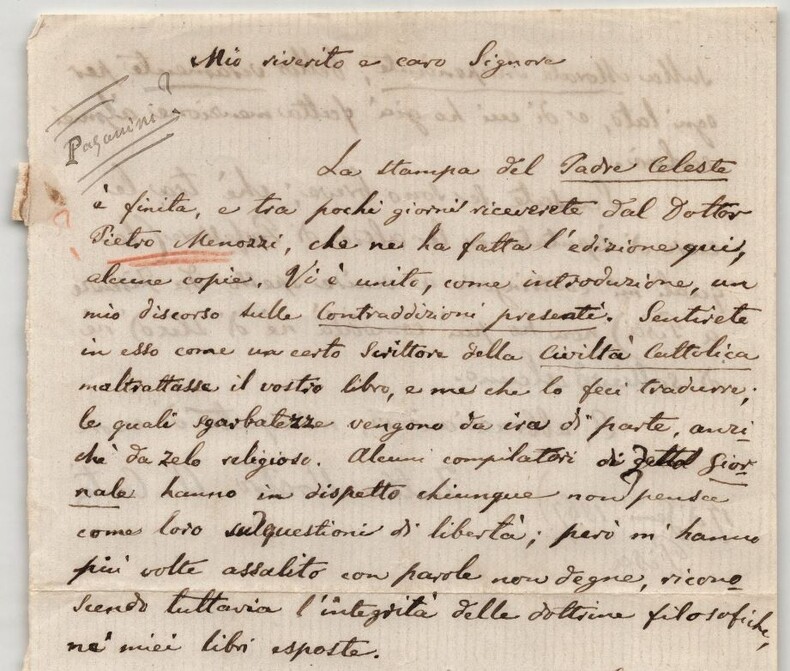 Mio riverito e caro Signore
Paganini?
La stampa del Padre Celeste
è finita, e tra pochi giorni riceverete dal Dottor
Pietro Menozzi, che ne ha fatta l'edizione qui,
alcune copie. Vi è unito, come introduzione, un
mio discorso sulle Contraddizioni presenti. Sentirete
in esso come un certo Scrittore della Civiltà Cattolica
maltrattasse il vostro libro, e me che lo feci tradurre;
le quali sgarbatezze vengono da ira di parte, anzi-
ché da zelo religioso. Alcuni compilatori di detto Gior-
nale hanno in dispetto chiunque non pensa
come loro sul questioni di libertà; però m'hanno
più volte assalito con parole non degne, ricono-
scendo tuttavia l'integrità delle dottrine filosofiche,
ne' miei libri esposte.